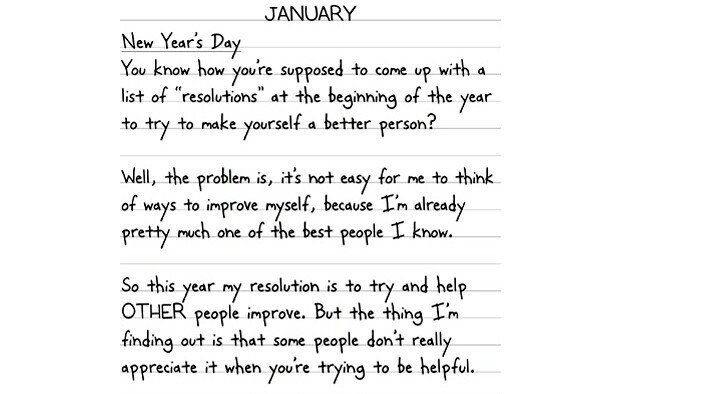 JANUARY
New Year's Day
You know how you're supposed to come up with a
list of "resolutions" at the beginning of the year
to try to make yourself a better person?
Well, the problem is, it's not easy for me to think
of ways to improve myself, because I'm already
pretty much one of the best people I know.
So this year my resolution is to try and help
OTHER people improve. But the thing I'm
finding out is that some people don't really
appreciate it when you're trying to be helpful.